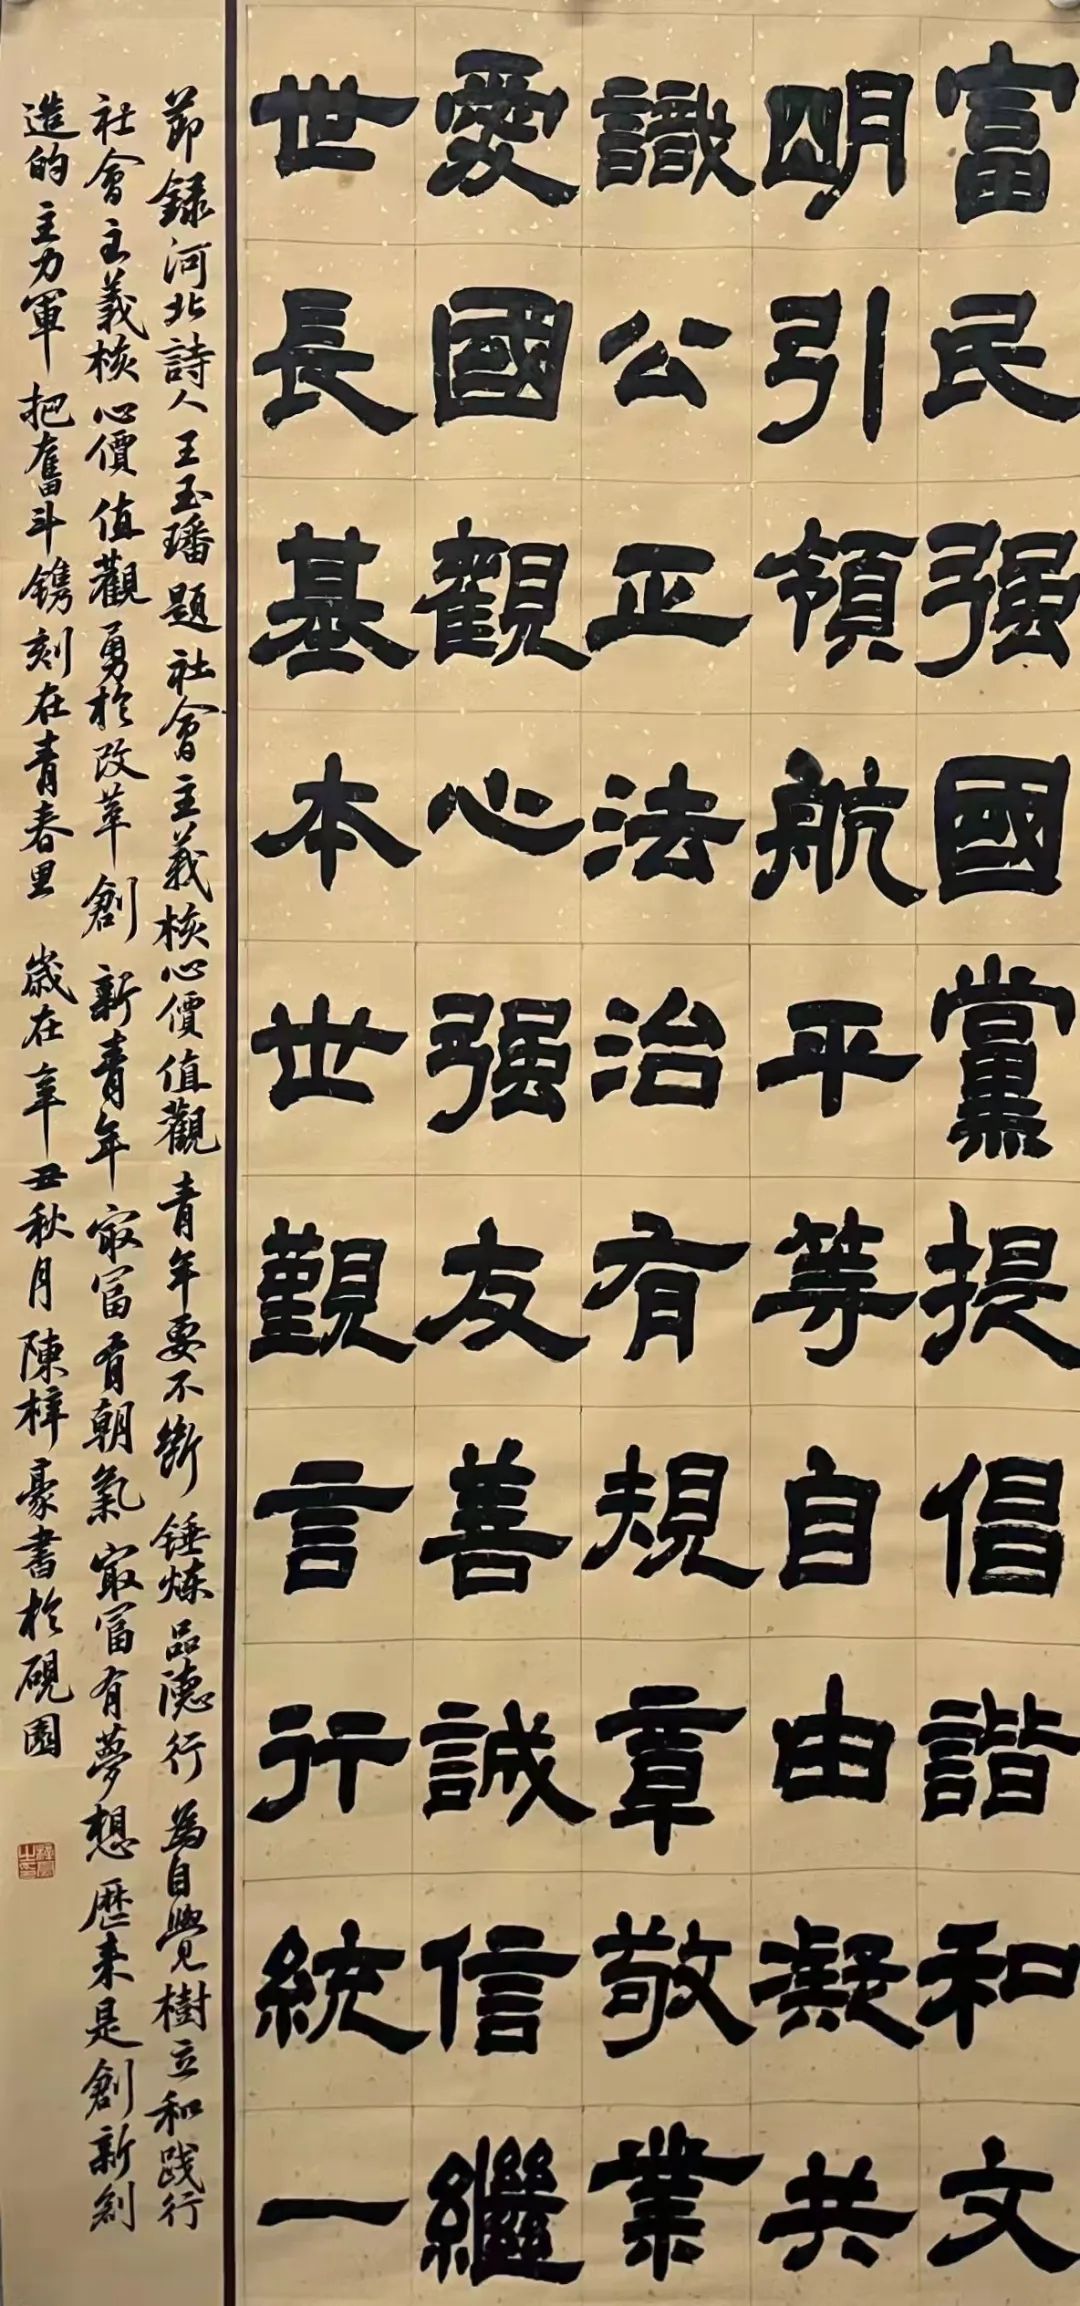 富民强國黨提倡諧和文
明引領航平等自由凝共
識公正法治有規章敬業
愛國觀心强友善誠信繼
世長基本世觀言行統一
節録河北詩人王玉璠題社會主義核心價值觀青年要不斷錘炼品德行為自覺樹立和践行
社會主義核心價值觀勇於改革創新青年最富有朝氣最富有夢想歷来是創新創
造的主力軍把奮斗镌刻在青春里歲在辛丑秋月陳梓豪書於硯園